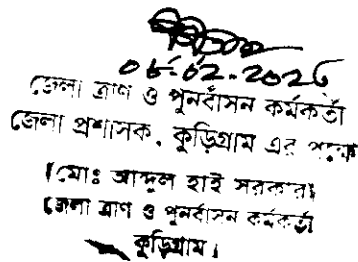 ০৮-০২-২০২৬
জেলা ত্রাণ ও পুনর্বাসন কর্মকর্তা
জেলা প্রশাসক, কুড়িগ্রাম এর পক্ষে
(মোঃ আব্দুল হাই সরকার)
জেলা ত্রাণ ও পুনর্বাসন কর্মকর্তা
কুড়িগ্রাম।